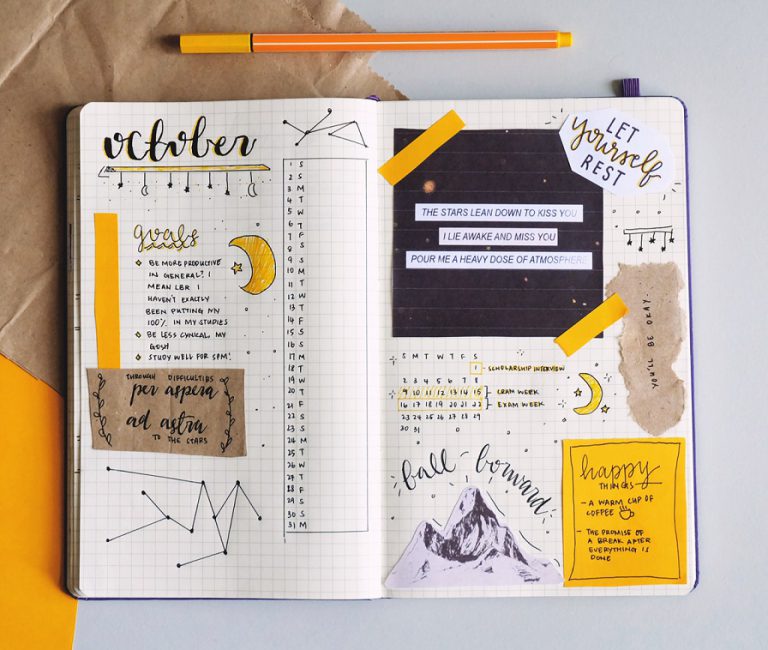 october
goals
BE MORE PRODUCTIVE
IN GENERAL? I
MEAN LBR I
HAVEN'T EXACTLY
BEEN PUTTING MY
100% IN MY STUDIES
BE LESS CYNICAL, MY
GOSH
STUDY WELL FOR SPM!
THROUGH DIFFICULTIES
per aspera
ad astra
TO THE STARS
1 S
2 S
3 M
4 T
5 W
6 T
7 F
8 S
9 S
10 M
11 T
12 W
13 T
14 F
15 S
16 S
17 M
18 T
19 W
20 T
21 F
22 S
23 S
24 M
25 T
26 W
27 T
28 F
29 S
30 S
31 M
THE STARS LEAN DOWN TO KISS YOU
I LIE AWAKE AND MISS YOU
POUR ME A HEAVY DOSE OF ATMOSPHERE
LET
yourself
REST
YOU'LL BE OKAY.
S M T W T F S
1 - SCHOLARSHIP INTERVIEW
2 3 4 5 6 7 8
9 10 11 12 13 14 15 - CRAM WEEK
16 17 18 19 20 21 22 - EXAM WEEK
23 24 25 26 27 28 29
30 31
fall-forward
happy
THINGS
- A WARM CUP OF
COFFEE
- THE PROMISE OF
A BREAK AFTER
EVERYTHING IS
DONE